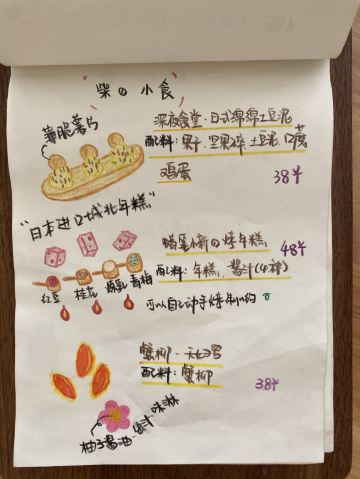 柴の小食
薄脆薯片
深夜食堂·日式绵绵土豆泥
配料: 果干 坚果碎 土豆 口蘑
鸡蛋
38半
"日本进口城北年糕"
蜡笔小新の烤年糕
48半
红豆 桂花 炼乳 青梅
配料: 年糕、酱汁(4种)
可以自己动手烤制的
蟹柳·天妇罗
配料: 蟹柳
38半
柚子酱油 味淋